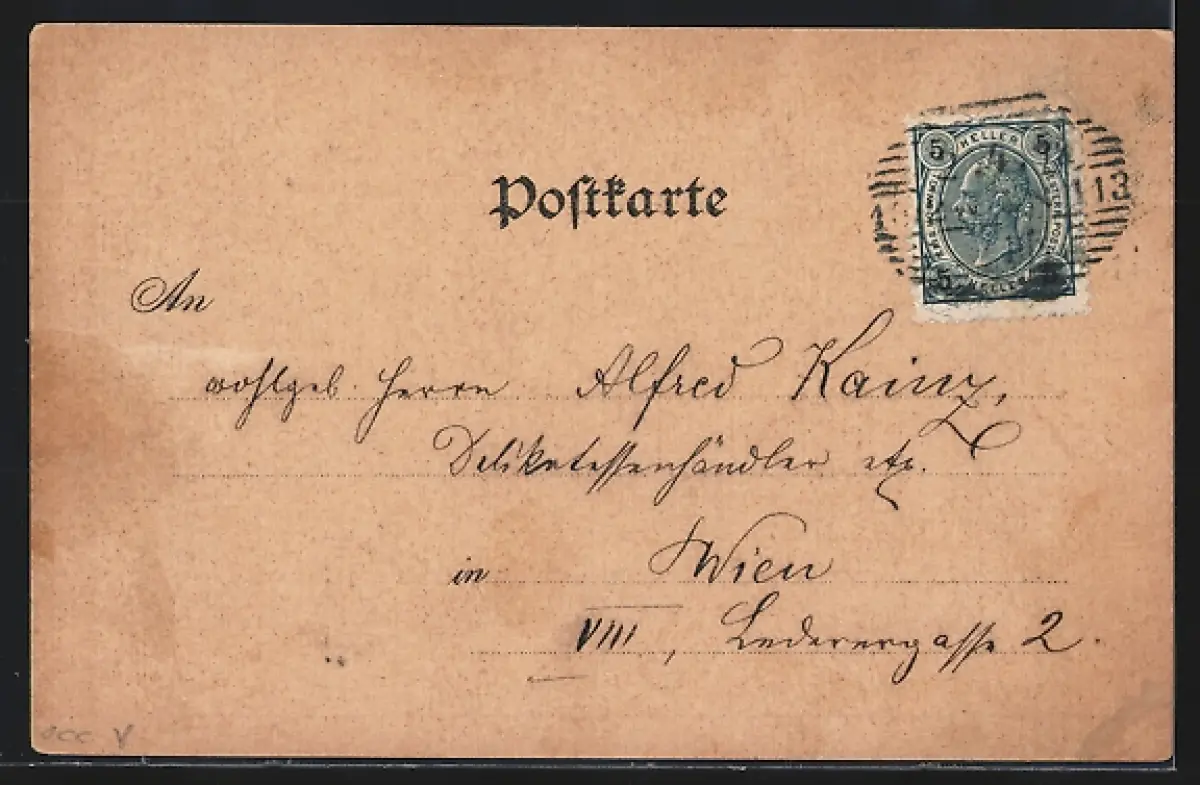 5 HELLER 5
113
5 HELLER
Postkarte
An
wohlgeb. Herrn Alfred Kainz,
Delikatessenhändler etz.
in Wien
VIII, Lederergasse 2.